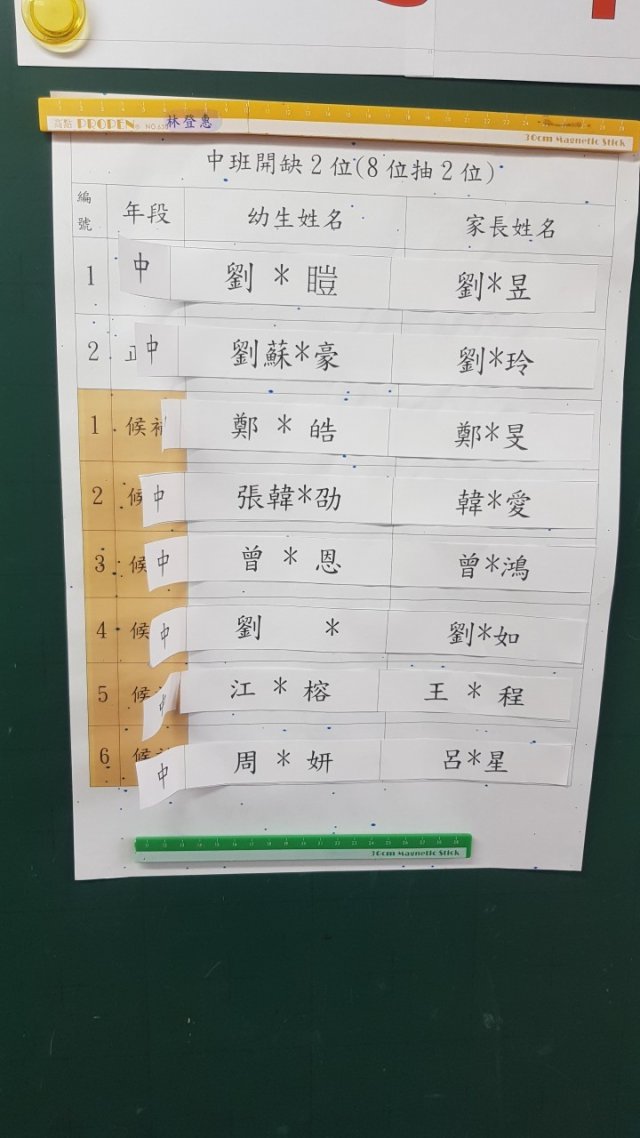 高點 PROPEN NO.630 林登惠
30cm Magnetic Stick
中班開缺2位(8位抽2位)
編號 年段 幼生姓名 家長姓名
1 中 劉*暟 劉*昱
2 正 中 劉蘇*豪 劉*玲
1 候補 鄭*皓 鄭*旻
2 候 中 張韓*劭 韓*愛
3 候 中 曾*恩 曾*鴻
4 候 中 劉* 劉*如
5 候 中 江*榕 王*程
6 候補 中 周*妍 呂*星
30cm Magnetic Stick